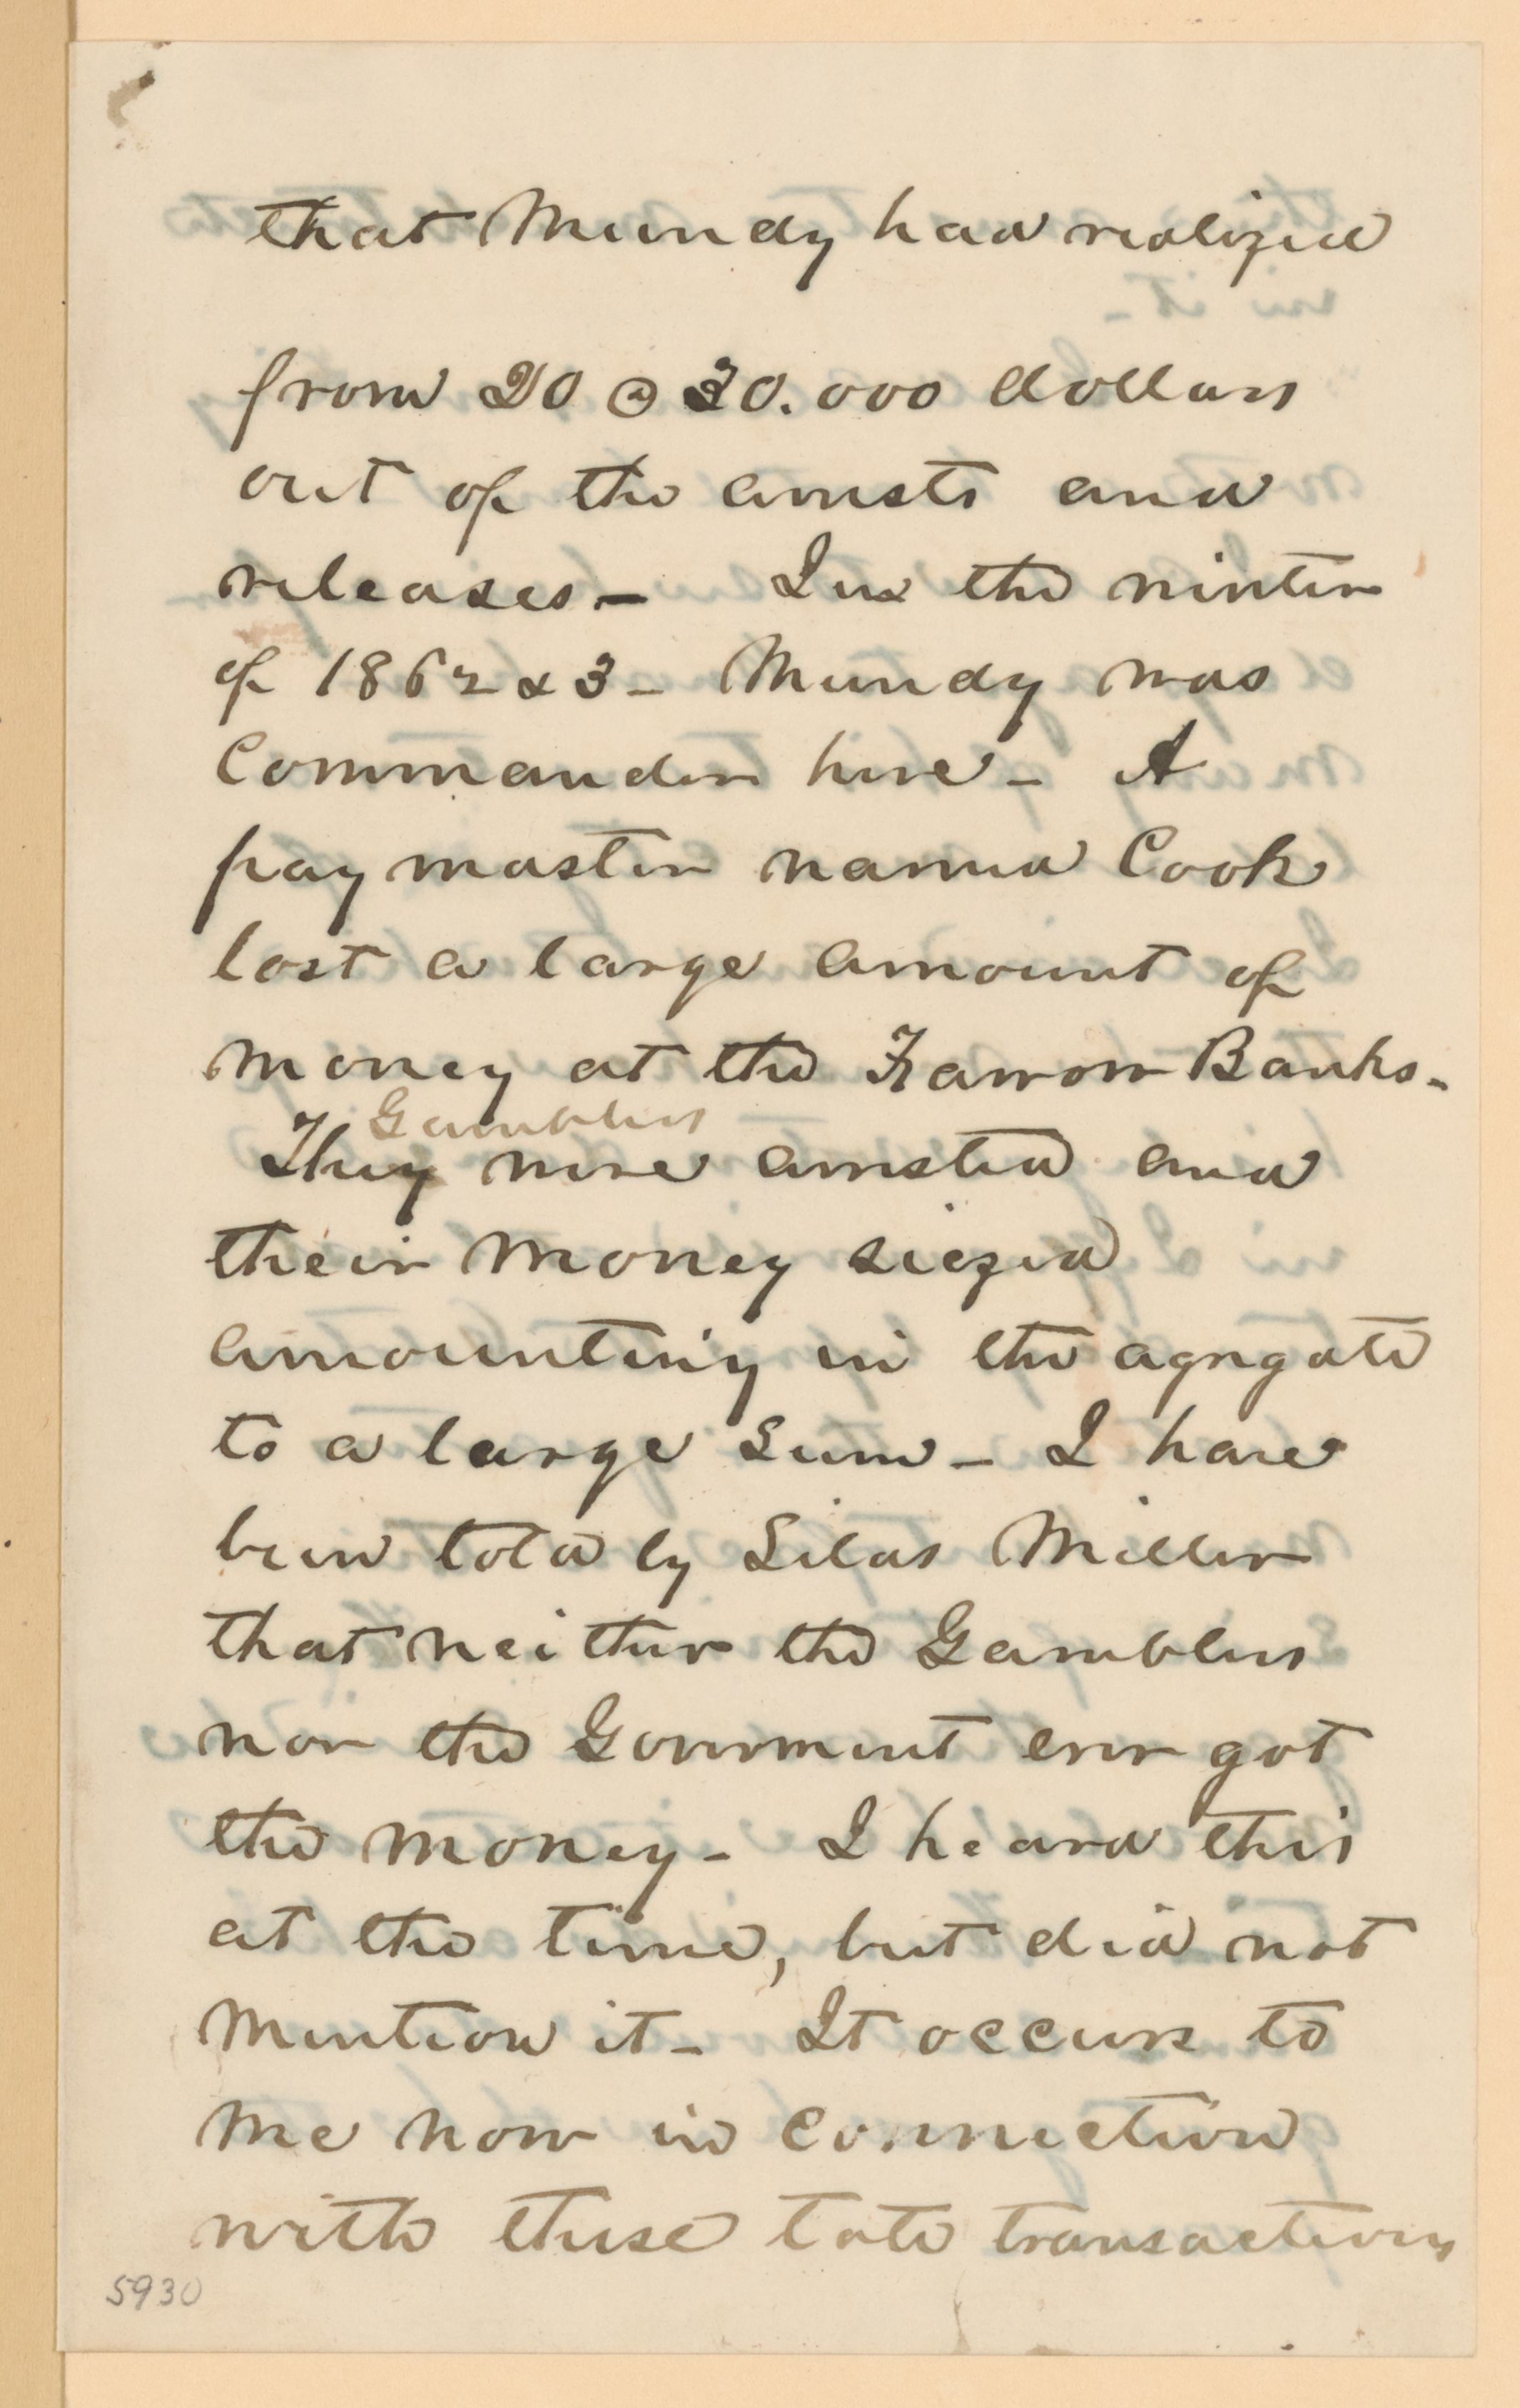 that Mundy had realized
from 20 @ 30.000 dollars
out of the arrests and
releases – In the winter
of 1862 & 3 – Mundy was
Commander here – A
pay master named Cook
lost a large amount of
money at the Farrow Banks –
Gamblers
They were arrested and
their money siezed
amounting in the agregate
to a large sum – I have
been told by Silas Miller
that neither the Gamblers
nor the Goverment ever got
the money – I heard this
at the time, but did not
mention it – It occurs to
me now in connection
with these late transactions
5930